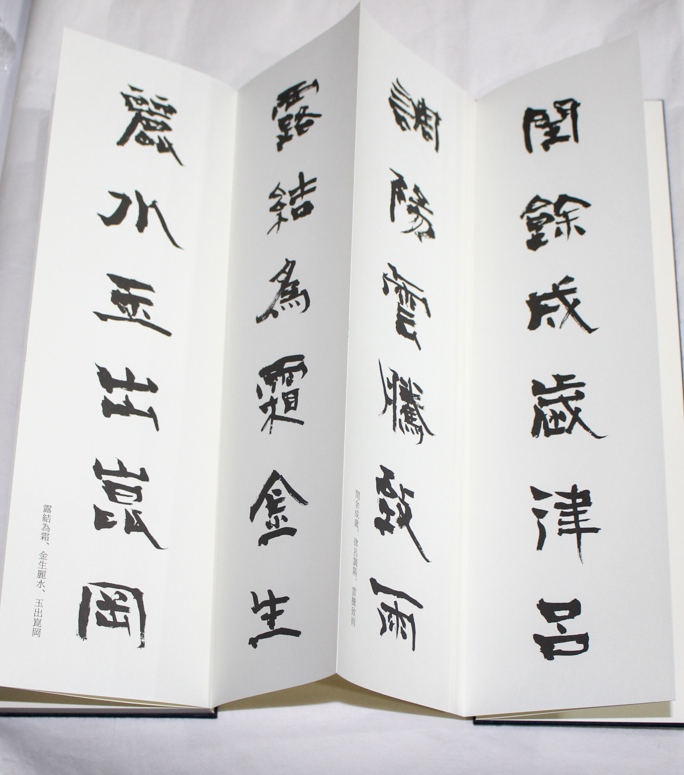 閏餘成歲津呂
調陽雲騰致雨
閏余成歳、律呂調陽、雲騰致雨
露結為霜金生
麗水玉出崑岡
露結為霜、金生麗水、玉出崑岡